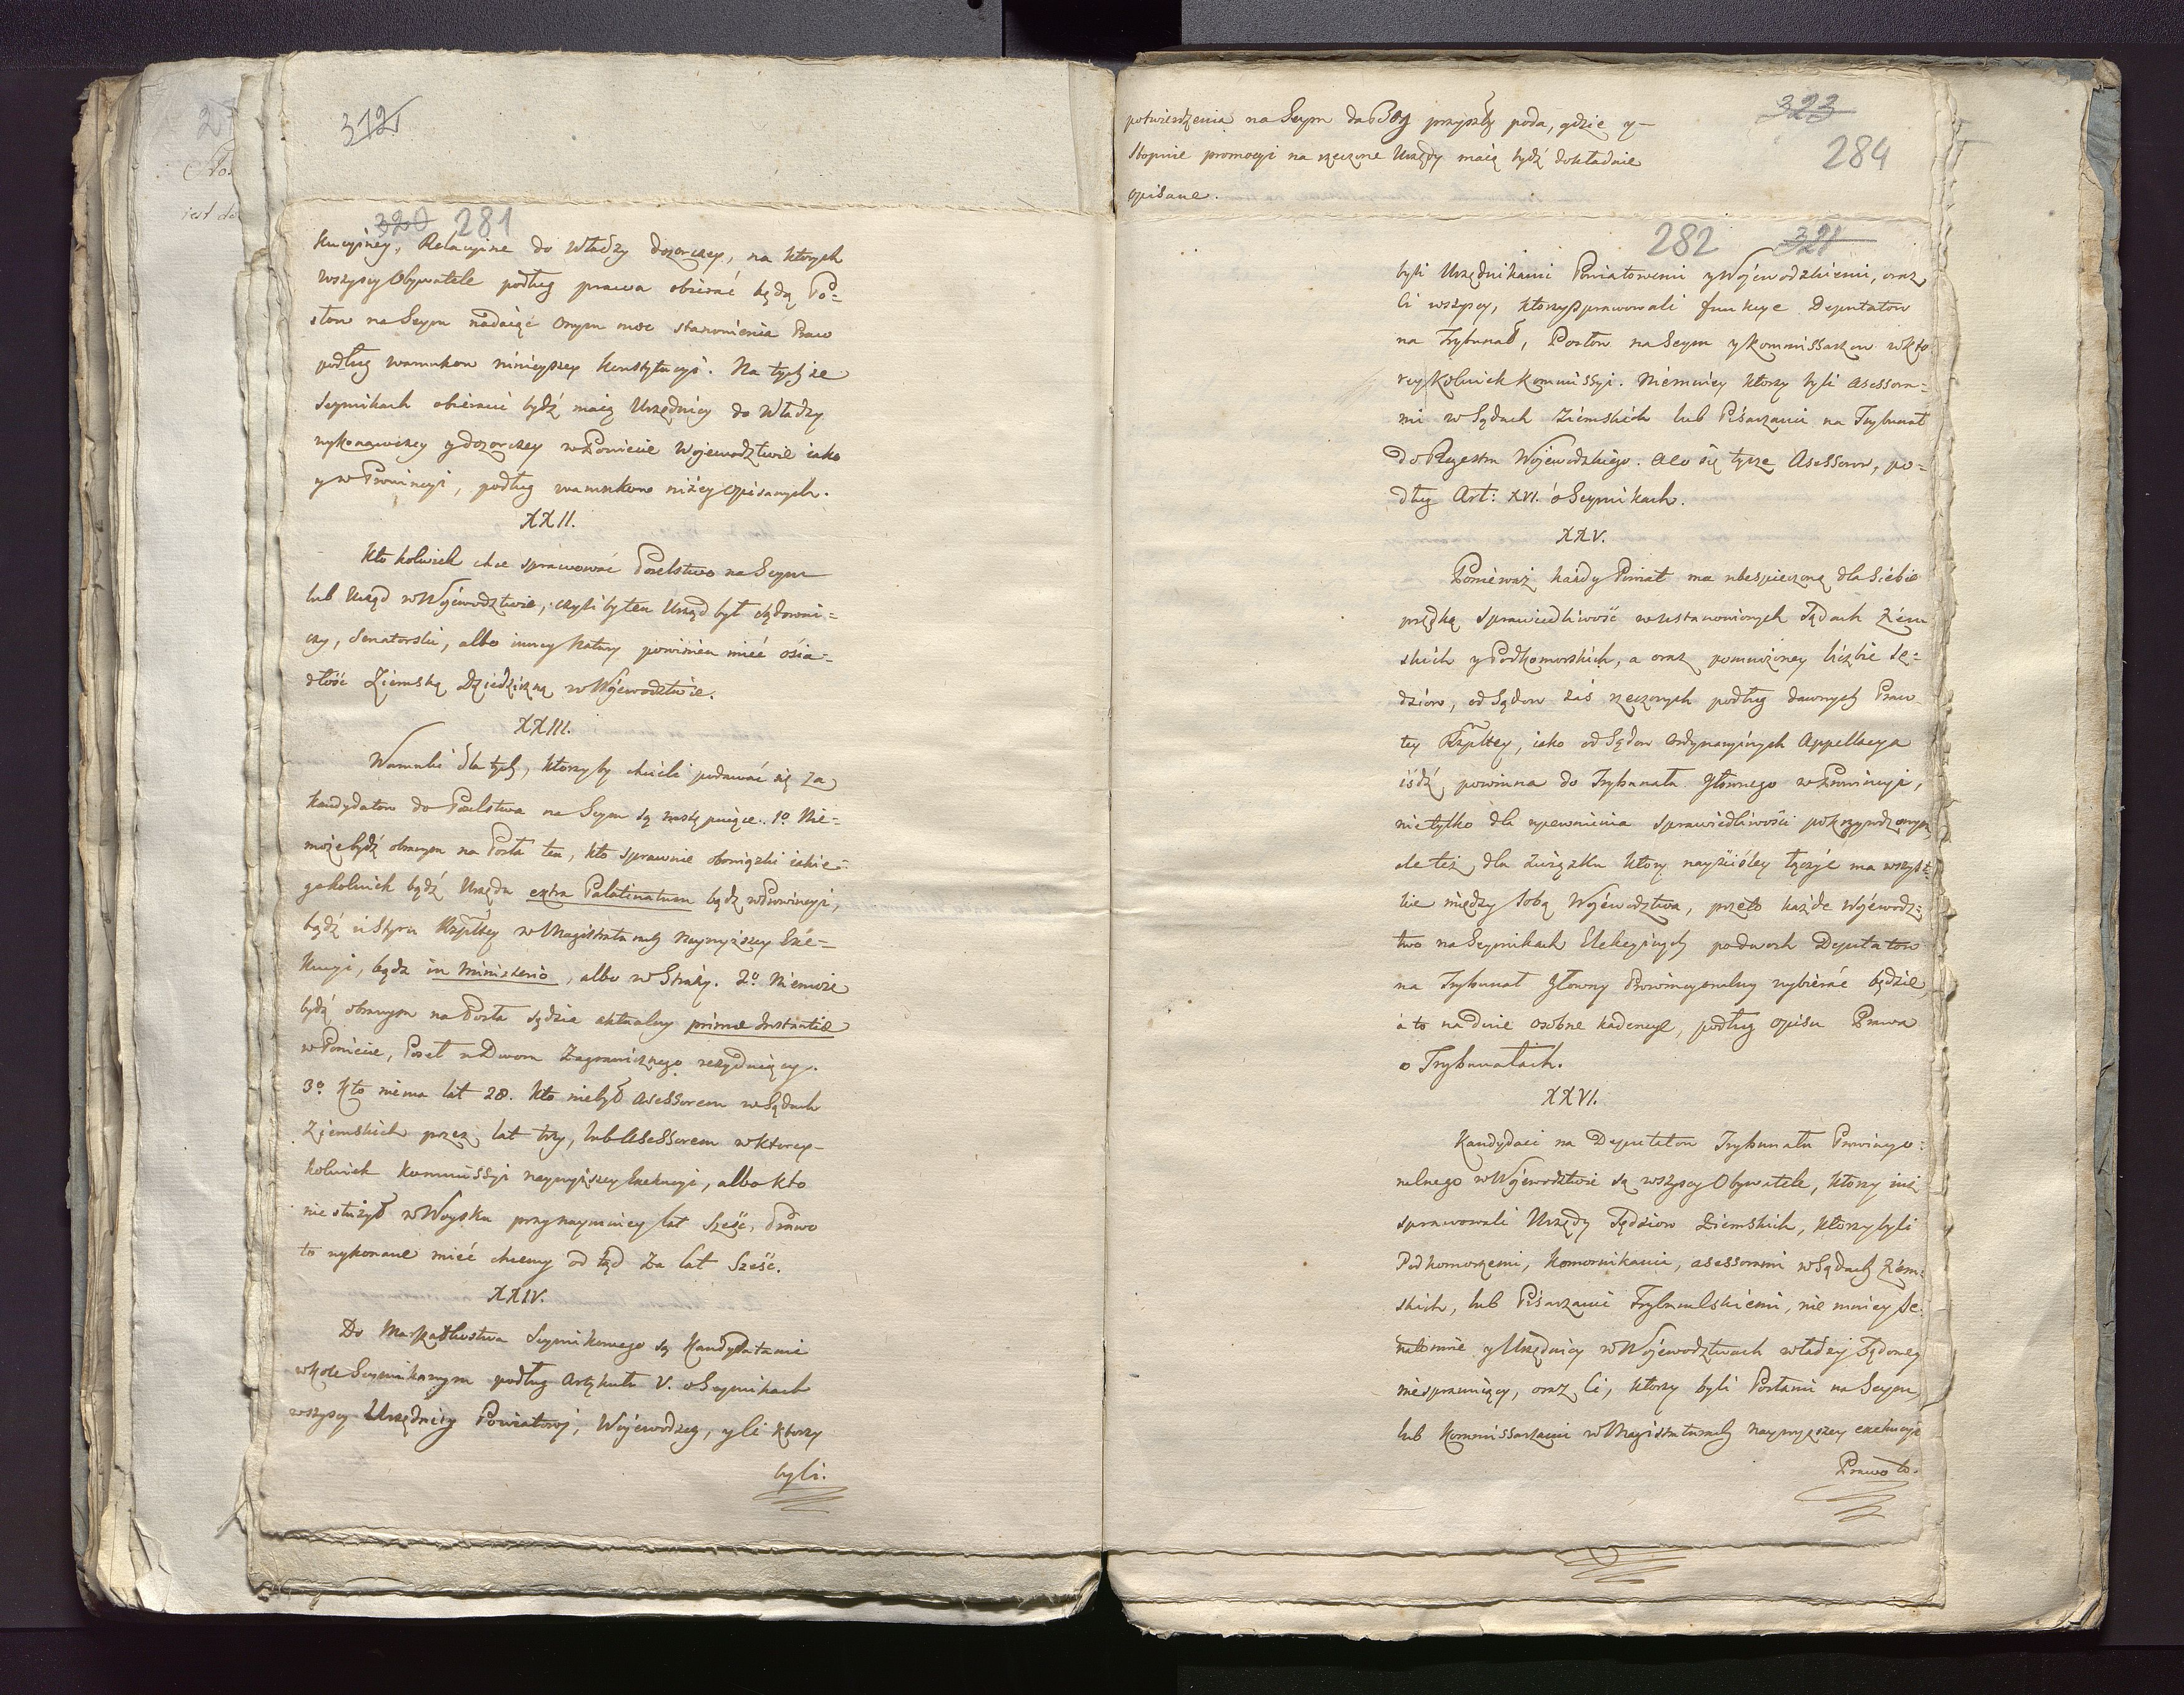 312
320 281
kucyiney, Relacyine do Władzy dozorczey, na ktorych
wszyscy Obywatele podług prawa obierać będą Po=
słow na Seym nadaiąc onym moc stanowienia Praw
podług warunkow ninieyszey konstytucyi. Na tychże
Seymikach obierani bydź maią Urzędnicy do Władzy
wykonawczey y dozorczey w Powiecie Wojewodztwie iako
y w Prowincyi, podług warunkow niżey opisanych.
XXII.
Kto kolwiek chce sprawować Poselstwo na Seym
lub Urząd w Wójewodztwie, czyliby ten Urząd był sędowni=
czy, Senatorski, albo inney natury powinien mieć osia=
dłość Ziemską Dziedziczną w Wójewodztwie.
XXIII.
Warunki dla tych, ktorzyby chcieli podawać się za
kandydatow do Poselstwa na Seym są następuiące. 1o Nie=
może bydź obranym na Posła ten, kto sprawuie obowiązki iakie=
gokolwiek bądź Urzędu extra Palatinatum bądź w Prowincyi,
bądź u Steru Rzpltey w Magistraturach Naywyższey Exe=
kucyi, bądz in Ministerio, albo w Straży. 2o Niemoże
bydź obranym na Posła sędzia aktualny primæ Instantiæ
w Powiecie, Poseł u Dworu Zagranicznego rezyduiący.
3o Kto niema lat 28. kto niebył Asessorem w Sądach
Ziemskich przez lat trzy, lub Asessorem w ktorey-
kolwiek kommissyi naywyższey exekucyi, albo kto
nie służył w Woysku przynaymniey lat sześć, Prawo
to wykonane mieć chcemy od tąd za lat sześć.
XXIV.
Do Marszałkostwa Seymikowego są Kandydatami
w kole Seymikowym podług Artykułu V. o Seymikach
wszyscy Urzędnicy Powiatowi, Wojewodzcy, y ci ktorzy
byli.
potwierdzenia na Seym da Bog przyszły poda, gdzie y
stopnie promocyi na rzeczone Urzędy maią bydź dokładnie
opisane.
323
284
282 321
byli Urzędnikami Powiatowemi y Wojewodzkiemi, oraz
ci wszyscy, ktorzy sprawowali funkcye Deputatow
na Trybunał, Posłow na Seym y kommissarzow w kto
reykolwiek kommissyi. Niemniey ktorzy byli Asessora=
mi w Sądach Ziemskich lub Pisarzami na Trybunał
do Regestru Wojewodzkiego. A co się tycze Asessorow, po=
dług Art: XVI. o Seymikach.
XXV.
Ponieważ każdy Powiat ma ubespieczoną dla siebie
prędką sprawiedliwość w ustanowionych sądach ziem
skich y Podkomorskich, a oraz pomnożoney liczbie sę=
dziow, od Sądow zaś rzeczonych podług dawnych Praw
tey Rzpltey, iako od Sądow ordynaryinych Appellacya
iśdź powinna do Trybunału Głownego w Prowincyi,
nietylko dla upewnienia sprawiedliwości pokrzywdzonym
ale też dla związku ktory nayściśley łączyć ma wszyst=
kie między sobą Wójewodztwa, przeto każde Wójewodz=
two na Seymikach Elekcyinych po dwoch Deputatow
na Trybunał Głowny Prowincyonalny wybierać będzie,
a to na dwie osobne kadencye, podług opisu Prawa
o Trybunałach.
XXVI.
Kandydaci na Deputatow Trybunału Prowincyo=
nalnego w Wójewodztwie są wszyscy Obywatele, ktorzy iuż
sprawowali Urzędy Sędziow Ziemskich, ktorzy byli
Podkomorzemi, Komornikami, Asessorami w Sądach Ziem=
skich, lub Pisarzami Trybunalskiemi, nie mniey Se=
natorowie y Urzędnicy w Wójewodztwach władzy Sądowey
niesprawuiący, oraz ci, ktorzy byli Posłami na Seym,
lub Kommissarzami w Magistraturach Naywyższey exekucyi
Prawo to.